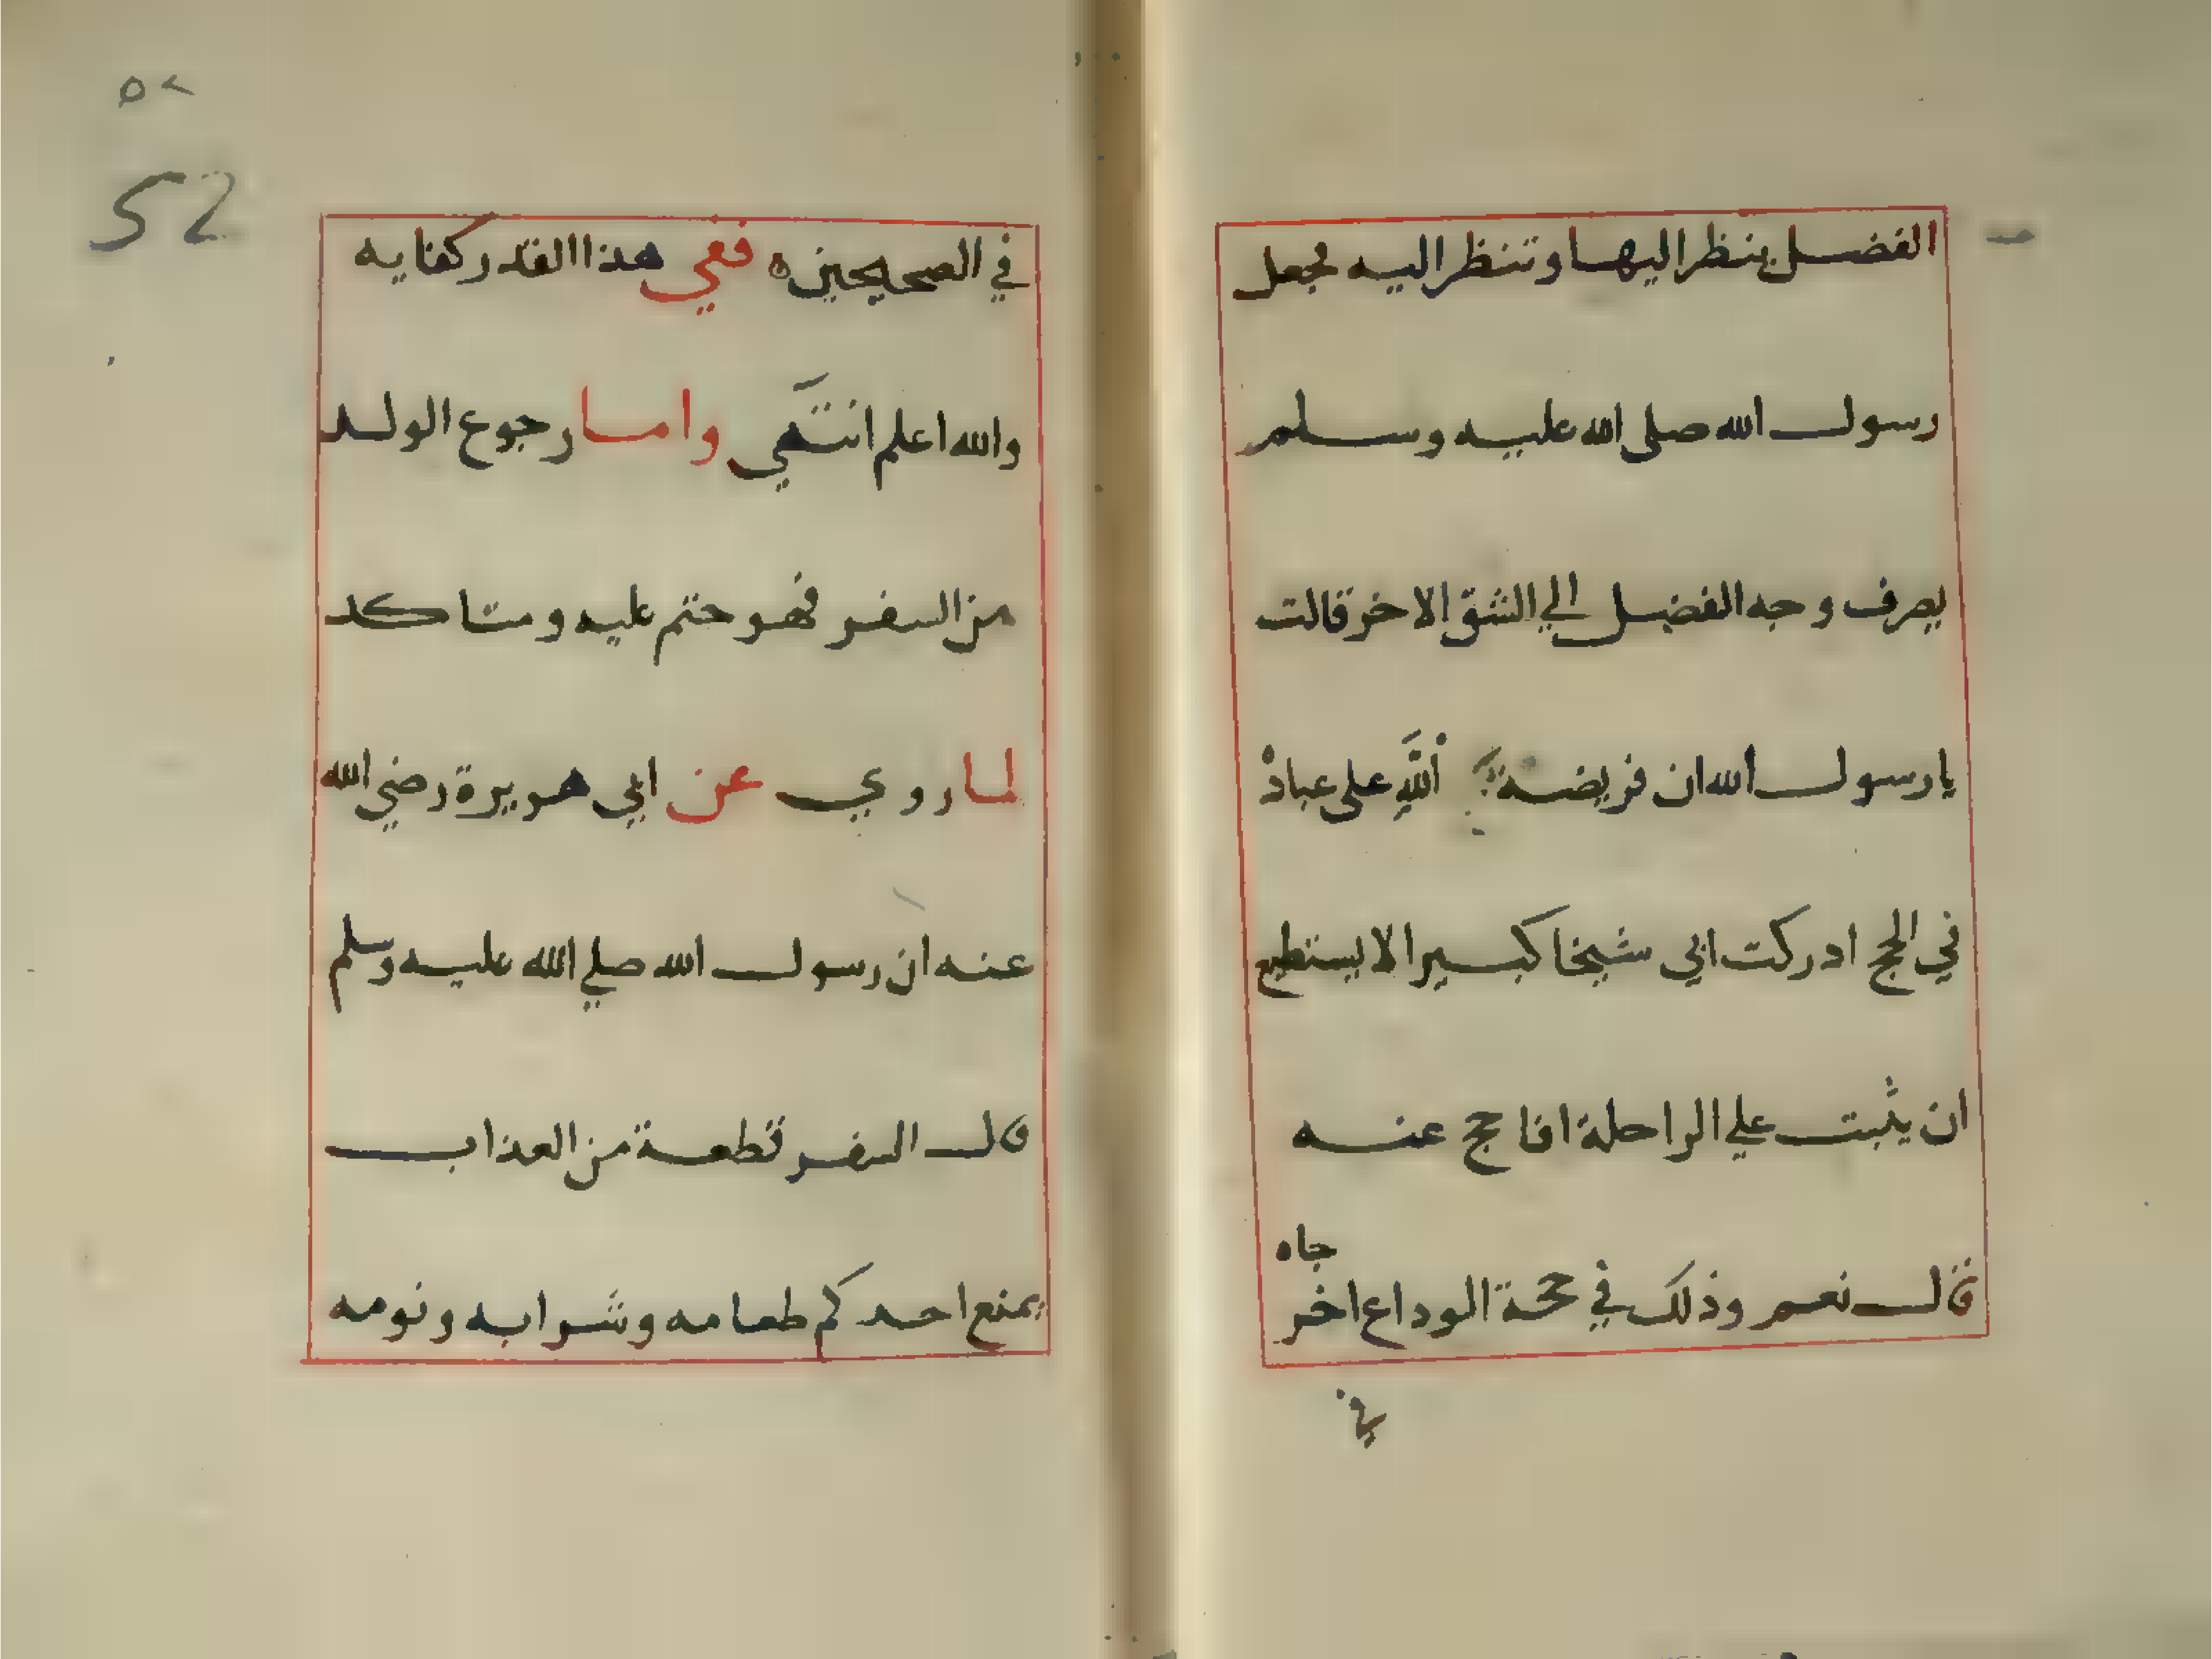 الفضل ينظر اليها وتنظر اليه فجعل
رسول الله صلى الله عليه وسلم
يصرف وجه الفضل الي الشق الاخر قالت
يا رسول الله ان فريضة الله على عباده
في الحج ادركت ابي شيخا كبيرا لا يستطيع
ان يثبت علي الراحلة افاحج عنه
قال نعم وذلك في حجة الوداع اخرجاه
في
٥٢
52
في الصحيحين ه ففي هذا القدر كفايه
والله اعلم انتهى واما رجوع الولد
من السفر فهو حتم عليه ومتاكد
لما روي عن ابي هريرة رضي الله
عنه ان رسول الله صلي الله عليه وسلم
قال السفر قطعة من العذاب
يمنع احدكم طعامه وشرابه ونومه